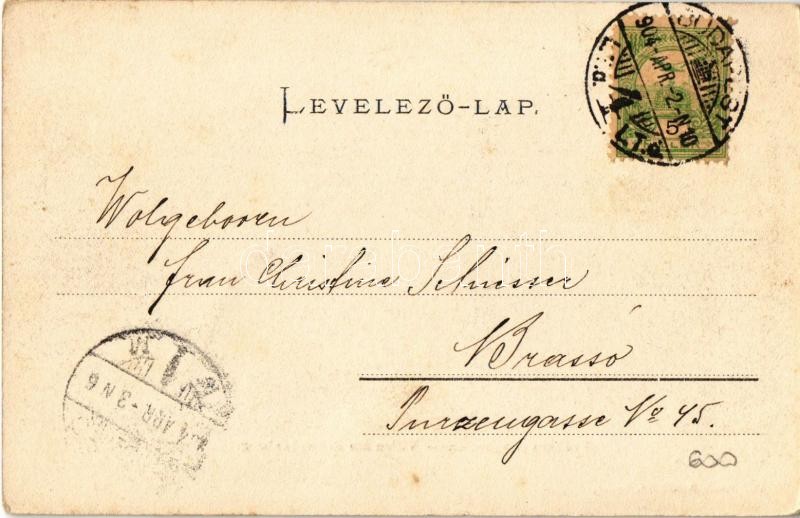 LEVELEZŐ-LAP.
BUDAPEST
904 APR. 2. N 10
5
Wolgeboren
frau Christine Schiesser
Brassó
Purzengasse No 45.
APR. -3 N 6
600